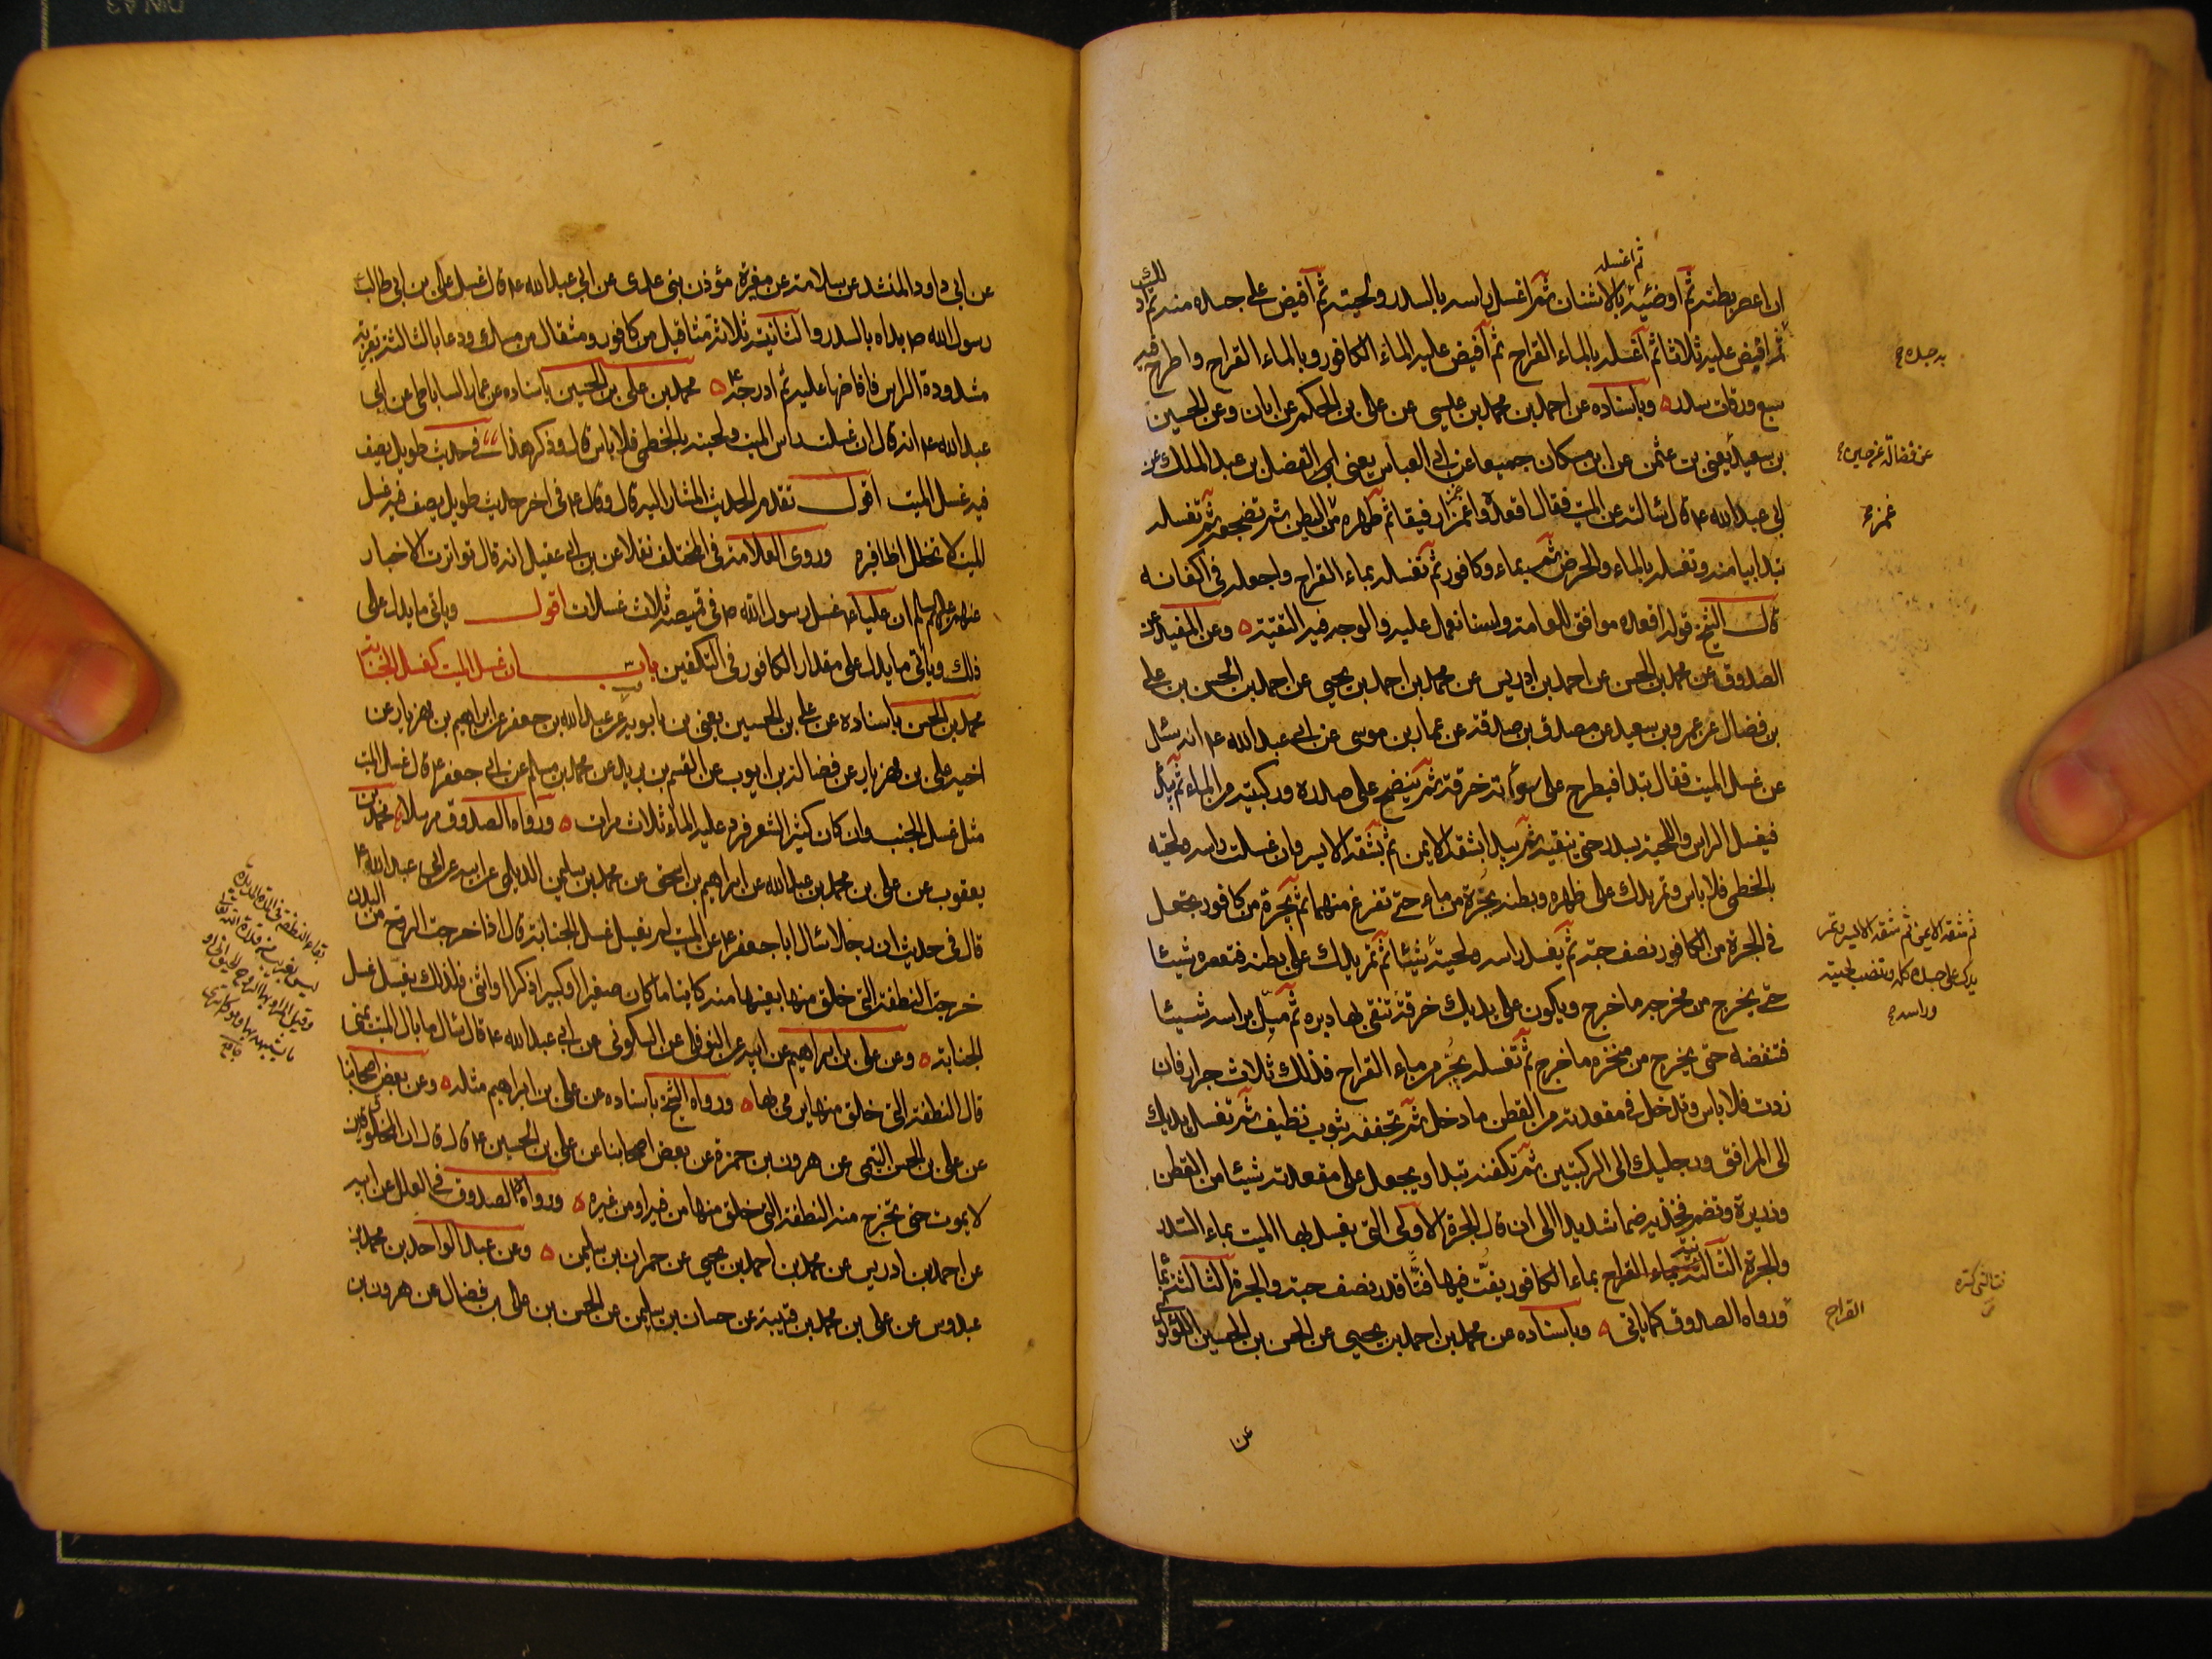 ثم اغسله
ان اعصر بطنه ثم اوضئه بالاشنان ثم اغسل راسه بالسدر ولحيته ثم افيض على جسده منه ثم ادلك
ثم افيض عليه ثلاثا ثم اغسله بالماء القراح ثم افيض عليه الماء الكافور وبالماء القراح واطرح فيه
سبع ورقات سدر ه وباسناده عن احمد بن محمد بن عيسى عن على بن الحكم عن ابان وعن الحسين
بن سعيد يعنى عن عثمن عن ابن مسكان جميعا عن ابى العباس يعنى الفضل بن عبد الملك عن
ابى عبد الله ع قال سالته عن الميت فقال اقعده واغمز بطنه غمزا رفيقا ثم طهره من غمز البطن ثم تضجعه ثم تغسله
تبدا بميامنه وتغسله بالماء والحرض ثم بماء وكافور ثم تغسله بماء القراح واجعله فى اكفانه
قال الشيخ قوله اقعده موافق للعامة ولسنا نعمل عليه والوجه فيه التقية ه وعن المفيد عن
الصدوق عن محمد بن الحسن عن احمد بن ادريس عن محمد بن احمد بن يحيى عن احمد بن الحسن بن على
بن فضال عن عمرو بن سعيد عن مصدق بن صدقة عن عمار بن موسى عن ابى عبد الله ع انه سئل
عن غسل الميت فقال تبدا فيطرح على سواته خرقة ثم ينضح على صدره وركبتيه من الماء ثم يبدا
فيغسل الراس واللحية بسدر حتى ينقيه ثم يبدا بشقه الايمن ثم بشقه الايسر وان غسلت راسه ولحيته
بالخطمى فلا باس وتمر يدك على ظهره وبطنه بجرة من ماء حتى تفرغ منهما ثم بجرة من كافور يجعل
فى الجرة من الكافور نصف حبة ثم يغسل راسه ولحيته شيئا ثم تمر يدك على بطنه فتعصره شيئا
حتى يخرج من مخرجه ما خرج ويكون على يديك خرقة تنقى بها دبره ثم ميل براسه شيئا
فتنفضه حتى يخرج من منخره ما خرج ثم تغسله بجرة من ماء القراح فذلك ثلاث جرار فان
زدت فلا باس وتدخل فى مقعدته من القطن ما دخل ثم تجففه بثوب نظيف ثم تغسل يديك
الى المرافق ورجليك الى الركبتين ثم تكفنه تبدا وتجعل على مقعدته شيئا من القطن
وذريرة وتضم فخذيه ضما شديدا الى ان قال الجرة الاولى التى يغسل بها الميت بماء السدر
والجرة الثانية بماء الكافور يفت فيها فتا قدر نصف حبة والجرة الثالثة بماء
القراح
ورواه الصدوق كما ياتى ه وباسناده عن محمد بن احمد بن يحيى عن الحسن بن الحسين اللؤلؤى
عن
يد جسده
عن فضالة عن حسين
غمزه
ثم شقه الايمن ثم شقه الايسر وتمر
يدك على جسده كله وتنصب لحيته
وراسه
عن ابى داود المنشد عن سلامة عن مغيرة مؤذن بنى عدى عن ابى عبد الله ع قال غسل على بن ابى طالب
رسول الله ص بداه بالسدر والثانية ثلاثة مثاقيل من كافور ومثقال من مسك ودعا بالثالثة بقربة
مشدودة الراس فافاضها عليه ثم ادرجه ع ه محمد بن على بن الحسين باسناده عن عمار الساباطى عن ابى
عبد الله ع انه قال ان غسلت راس الميت ولحيته بالخطمى فلا باس قال وذكر هذا فى حديث طويل يصف
فيه غسل الميت اقول تقدم الحديث المشار اليه قال وقال ع فى اخر حديث طويل يصف فيه غسل
الميت لا تخلل اظافيره وروى العلامة فى المختلف نقلا عن ابن ابى عقيل انه قال تواترت الاخبار
عنهم عليهم السلم ان عليا ع غسل رسول الله ص فى قميصه ثلاث غسلات اقول وياتى ما يدل على
ذلك وياتى ما يدل على مقدار الكافور فى التكفين باب ان غسل الميت كغسل الجنابة
محمد بن الحسن باسناده عن على بن الحسين يعنى بن بابويه عن عبد الله بن جعفر عن ابراهيم بن مهزيار عن
اخيه على بن مهزيار عن فضالة بن ايوب عن القسم بن بريد عن محمد بن مسلم عن ابى جعفر ع قال غسل الميت
مثل غسل الجنب وان كان كثير الشعر فرد عليه الماء ثلاث مرات ه ورواه الصدوق مرسلا ه محمد بن
يعقوب عن على بن محمد بن عبد الله عن ابراهيم بن اسحق عن محمد بن سليمن الديلمى عن ابيه عن ابى عبد الله ع
قال فى حديث ان رجلا سال ابا جعفر ع عن الميت لم يغسل غسل الجنابة قال اذا خرجت الروح من البدن
خرجت النطفة التى خلق منها بعينها منه كاينا ما كان صغيرا او كبيرا ذكرا او انثى فلذلك يغسل غسل
الجنابة ه وعن على بن ابراهيم عن ابيه عن النوفلى عن السكونى عن ابى عبد الله ع قال سئل ما بال الميت يمنى
قال النطفة التى خلق منها يرمى بها ه ورواه الشيخ باسناده عن على بن ابراهيم مثله ه وعن بعض اصحابنا
عن على بن الحسن التيمى عن هرون بن حمزة عن بعض اصحابنا عن على بن الحسين ع قال قال ان المخلوق
لا يموت حتى تخرج منه النطفة التى خلق منها من فيه او من غيره ه ورواه الصدوق فى العلل عن ابيه
عن احمد بن ادريس عن محمد بن احمد بن يحيى عن حمران بن سليمن ه وعن عبد الواحد بن محمد بن
عبدوس عن على بن محمد بن قتيبة عن حمدان بن سليمن عن الحسن بن على بن فضال عن هرون بن